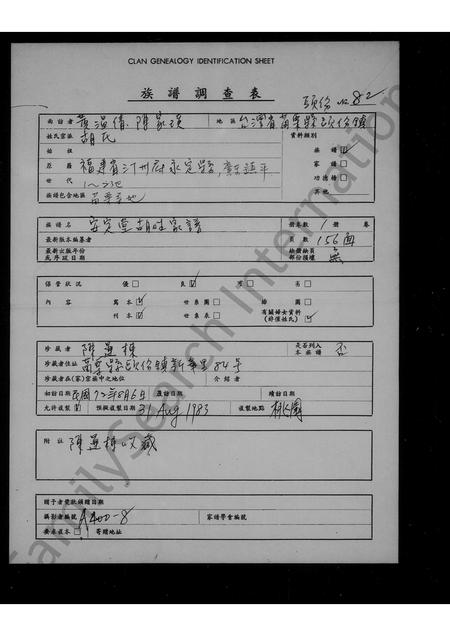 CLAN GENEALOGY IDENTIFICATION SHEET
族譜調查表
頭份 No. 82
面訪者 黃溫倩 陳家瑛 地區 台灣省苗栗縣頭份鎮
姓氏宗派 胡氏 資料類別
始祖 族譜
居屬 福建省汀州府永定縣 家譜
世代 功德榜
族譜包含地區 其他
族譜名 安定堂胡姓家譜 冊卷數 1 冊 卷
最新版本編纂者 頁數 156面
最新出版年份或序跋日期 缺漏缺頁部份損壞 無
保管狀況 優 良 可 劣
內容 寫本 世系圖 繪圖
刊本 世系表 有關婦女資料(非僅姓氏)
珍藏者 陳運棟 是否列入本族譜 否
珍藏者住址 苗栗縣頭份鎮新華里84号
珍藏者在(家)宗族中之地位 介紹者
初訪日期 民國72年8月6日 覆訪日期 續訪日期
允許複製 預擬複製日期 31 Aug 1983 複製地點 桃園
附註 陳運棟收藏
贈予者獎狀頒贈日期
攝影者編號 A400-8 家譜學會編號
要求返本 寄贈地址
FamilySearch International